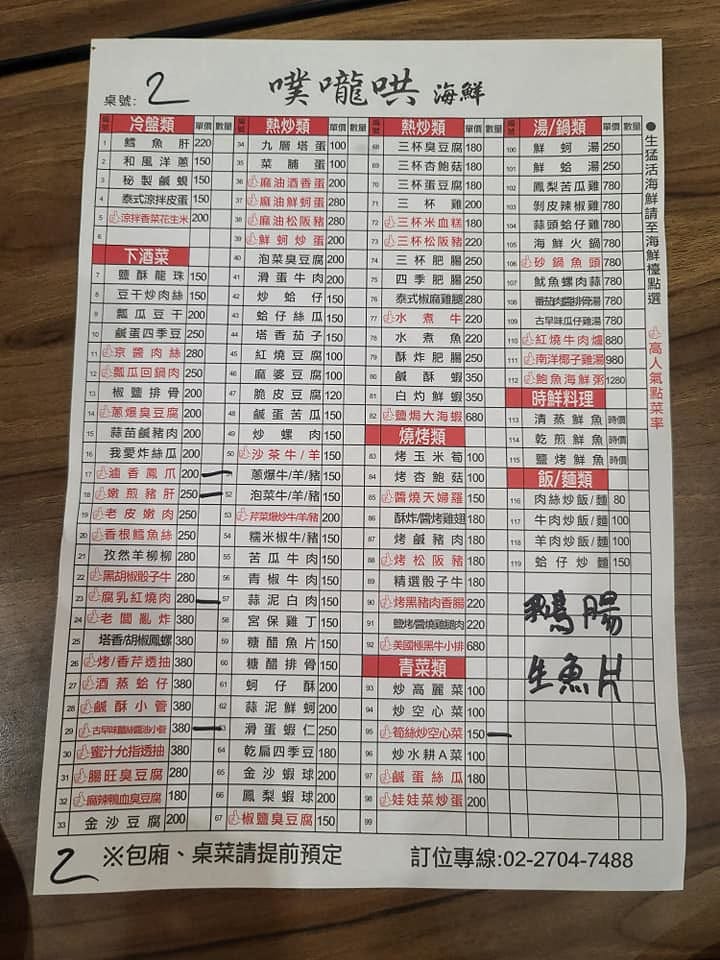 桌號: 2
噗嚨哄 海鮮
編號 冷盤類 單價 數量
1 鱈魚肝 220
2 和風洋蔥 150
3 秘製鹹蜆 150
4 泰式涼拌皮蛋 150
5 涼拌香菜花生米 200
6
下酒菜
7 鹽酥龍珠 150
8 豆干炒肉絲 150
9 瓢瓜豆干 200
10 鹹蛋四季豆 250
11 京醬肉絲 280
12 瓢瓜回鍋肉 250
13 椒鹽排骨 200
14 蔥爆臭豆腐 200
15 蒜苗鹹豬肉 200
16 我愛炸絲瓜 200
17 滷香鳳爪 200
18 嫩煎豬肝 250
19 老皮嫩肉 250
20 香根鱈魚絲 250
21 孜然羊柳柳 280
22 黑胡椒骰子牛 280
23 腐乳紅燒肉 280
24 老闆亂炸 380
25 塔香/胡椒鳳螺 380
26 烤/香芹透抽 380
27 酒蒸蛤仔 380
28 鹹酥小管 380
29 古早味蔥絲醬油小管 380
30 蜜汁允指透抽 380
31 腸旺臭豆腐 280
32 麻辣鴨血臭豆腐 180
33 金沙豆腐 200
編號 熱炒類 單價 數量
34 九層塔蛋 100
35 菜脯蛋 100
36 麻油酒香蛋 200
37 麻油鮮蚵蛋 280
38 麻油松阪豬 280
39 鮮蚵炒蛋 200
40 泡菜臭豆腐 200
41 滑蛋牛肉 200
42 炒蛤仔 150
43 蛤仔絲瓜 150
44 塔香茄子 150
45 紅燒豆腐 100
46 麻婆豆腐 100
47 脆皮豆腐 120
48 鹹蛋苦瓜 150
49 炒螺肉 150
50 沙茶牛/羊 150
蔥爆牛/羊/豬 150
52 泡菜牛/羊/豬 150
53 芹菜爆炒牛/羊/豬 200
54 糯米椒牛/豬 150
55 苦瓜牛肉 150
56 青椒牛肉 150
57 蒜泥白肉 150
58 宮保雞丁 150
59 糖醋魚片 150
60 糖醋排骨 150
61 蚵仔酥 200
62 蒜泥鮮蚵 200
滑蛋蝦仁 250
64 乾扁四季豆 180
65 金沙蝦球 200
66 鳳梨蝦球 200
67 椒鹽臭豆腐 150
編號 熱炒類 單價 數量
68 三杯臭豆腐 180
69 三杯杏鮑菇 180
70 三杯蛋豆腐 180
71 三杯雞 200
72 三杯米血糕 180
73 三杯松阪豬 220
74 三杯肥腸 250
75 四季肥腸 250
76 泰式椒麻雞腿 280
77 水煮牛 220
78 水煮魚 220
79 酥炸肥腸 250
80 鹹酥蝦 350
81 白灼鮮蝦 350
82 鹽焗大海蝦 680
燒烤類
83 烤玉米筍 100
84 烤杏鮑菇 100
85 醬燒天婦羅 150
86 酥炸/醬烤雞翅 180
87 烤鹹豬肉 180
88 烤松阪豬 180
89 精選骰子牛 180
90 烤黑豬肉香腸 220
91 鹽烤/醬燒雞腿肉 220
92 美國極黑牛小排 680
青菜類
93 炒高麗菜 100
94 炒空心菜 100
95 筍絲炒空心菜 150
96 炒水耕A菜 100
97 鹹蛋絲瓜 180
98 娃娃菜炒蛋 200
99
編號 湯/鍋類 單價 數量
100 鮮蚵湯 250
101 鮮蛤湯 250
102 鳳梨苦瓜雞 780
103 剝皮辣椒雞 780
104 蒜頭蛤仔雞 780
105 海鮮火鍋 780
106 砂鍋魚頭 780
107 魷魚螺肉蒜 780
108 番茄肉醬排骨湯 780
109 古早味瓜仔雞湯 780
110 紅燒牛肉爐 880
111 南洋椰子雞湯 980
112 鮑魚海鮮粥 1280
時鮮料理
113 清蒸鮮魚 時價
114 乾煎鮮魚 時價
115 鹽烤鮮魚 時價
飯/麵類
116 肉絲炒飯/麵 80
117 牛肉炒飯/麵 100
118 羊肉炒飯/麵 100
119 蛤仔炒麵 150
鵝腸
生魚片
●生猛活海鮮請至海鮮檯點選
高人氣點菜率
2 ※包廂、桌菜請提前預定 訂位專線:02-2704-7488